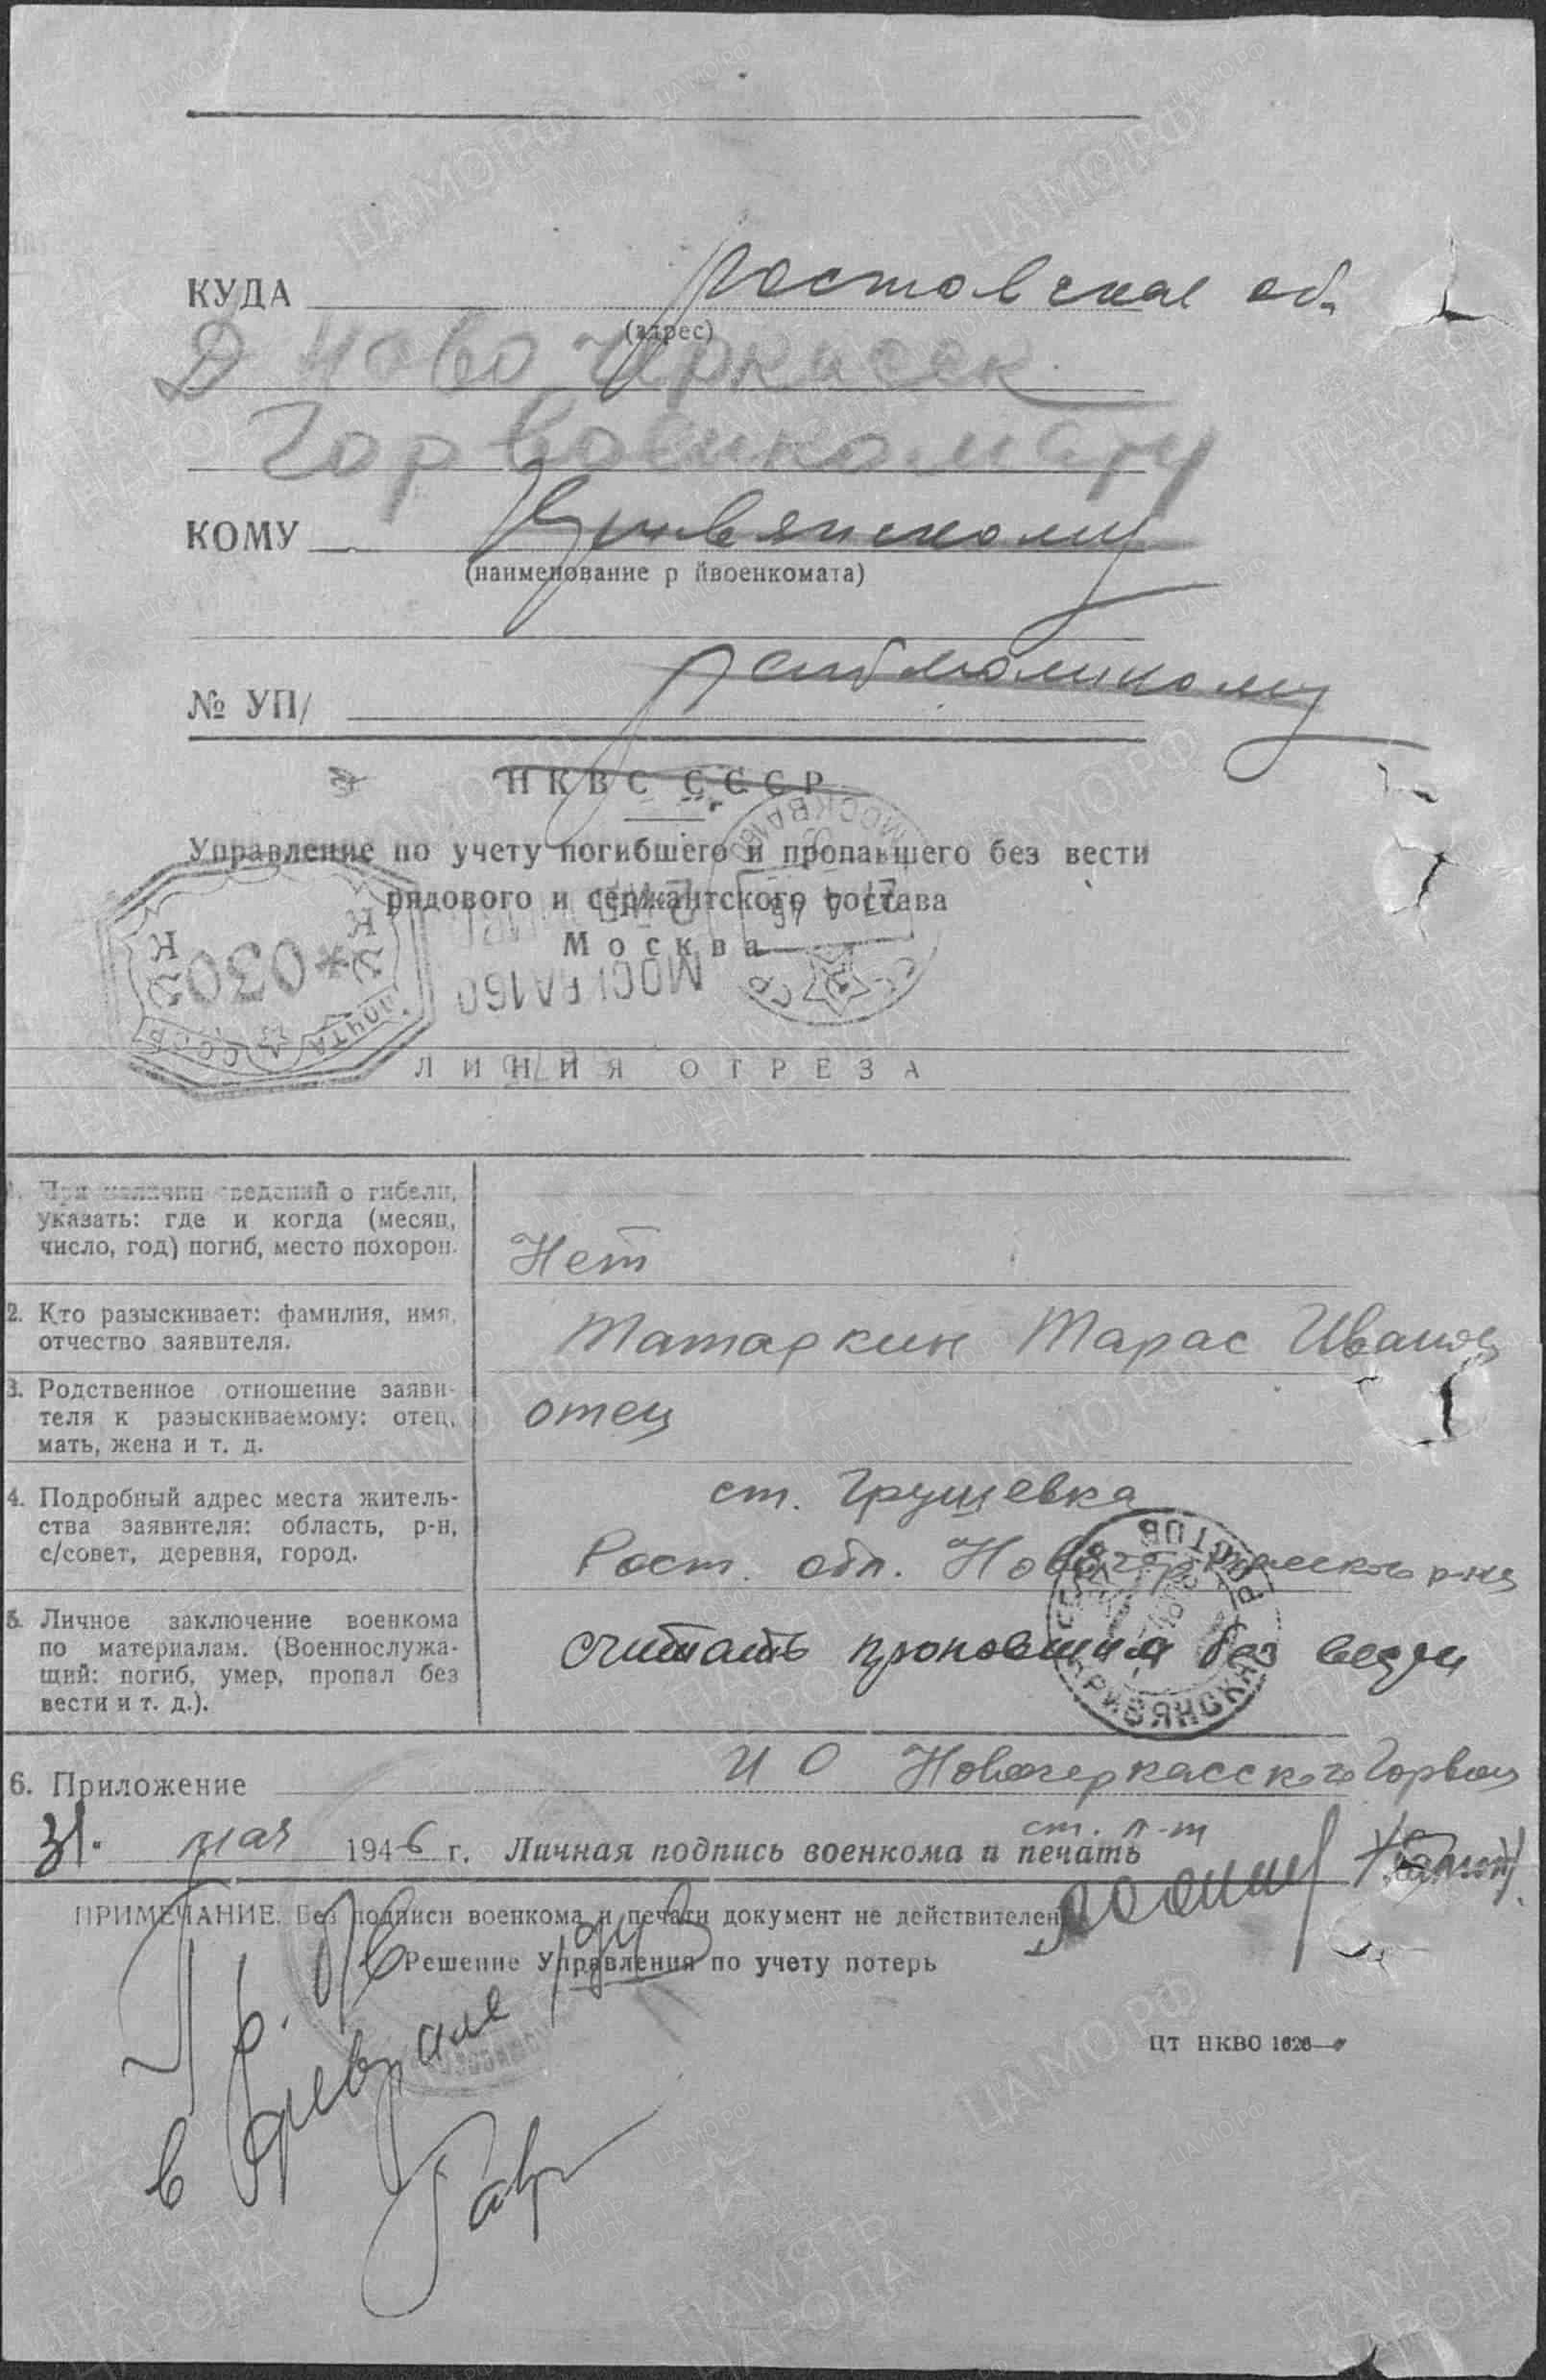 КУДА Ростовская об.
(адрес)
Новочеркасск
Горвоенкомату
КОМУ Кривянскому
(наименование р йвоенкомата)
райвоенкому
№ УП/
НКВС СССР
Управление по учету погибшего и пропавшего без вести
рядового и сержантского состава
Москва
МОСКВА 160
27 4 46
*030
ПОЧТА СССР
ЛИНИЯ ОТРЕЗА
1. При наличии сведений о гибели,
указать: где и когда (месяц,
число, год) погиб, место похорон.
Нет
2. Кто разыскивает: фамилия, имя,
отчество заявителя.
Татаркин Тарас Иванов
3. Родственное отношение заяви-
теля к разыскиваемому: отец,
мать, жена и т. д.
отец
4. Подробный адрес места житель-
ства заявителя: область, р-н,
с/совет, деревня, город.
ст. Грушевка
Рост. обл. Новочеркасского р-на
5. Личное заключение военкома
по материалам. (Военнослужа-
щий: погиб, умер, пропал без
вести и т. д.).
считать пропавшим без вести
КРИВЯНСКАЯ РОСТОВ
6. Приложение И О Новочеркасского Горвоен
ст. л-т
31. мая 1946 г. Личная подпись военкома и печать
ПРИМЕЧАНИЕ. Без подписи военкома и печати документ не действителен
Решение Управления по учету потерь
Пр. б/в
в феврале
ЦТ НКВО 1626
ЦАМО.РФ
ПАМЯТЬ НАРОДА